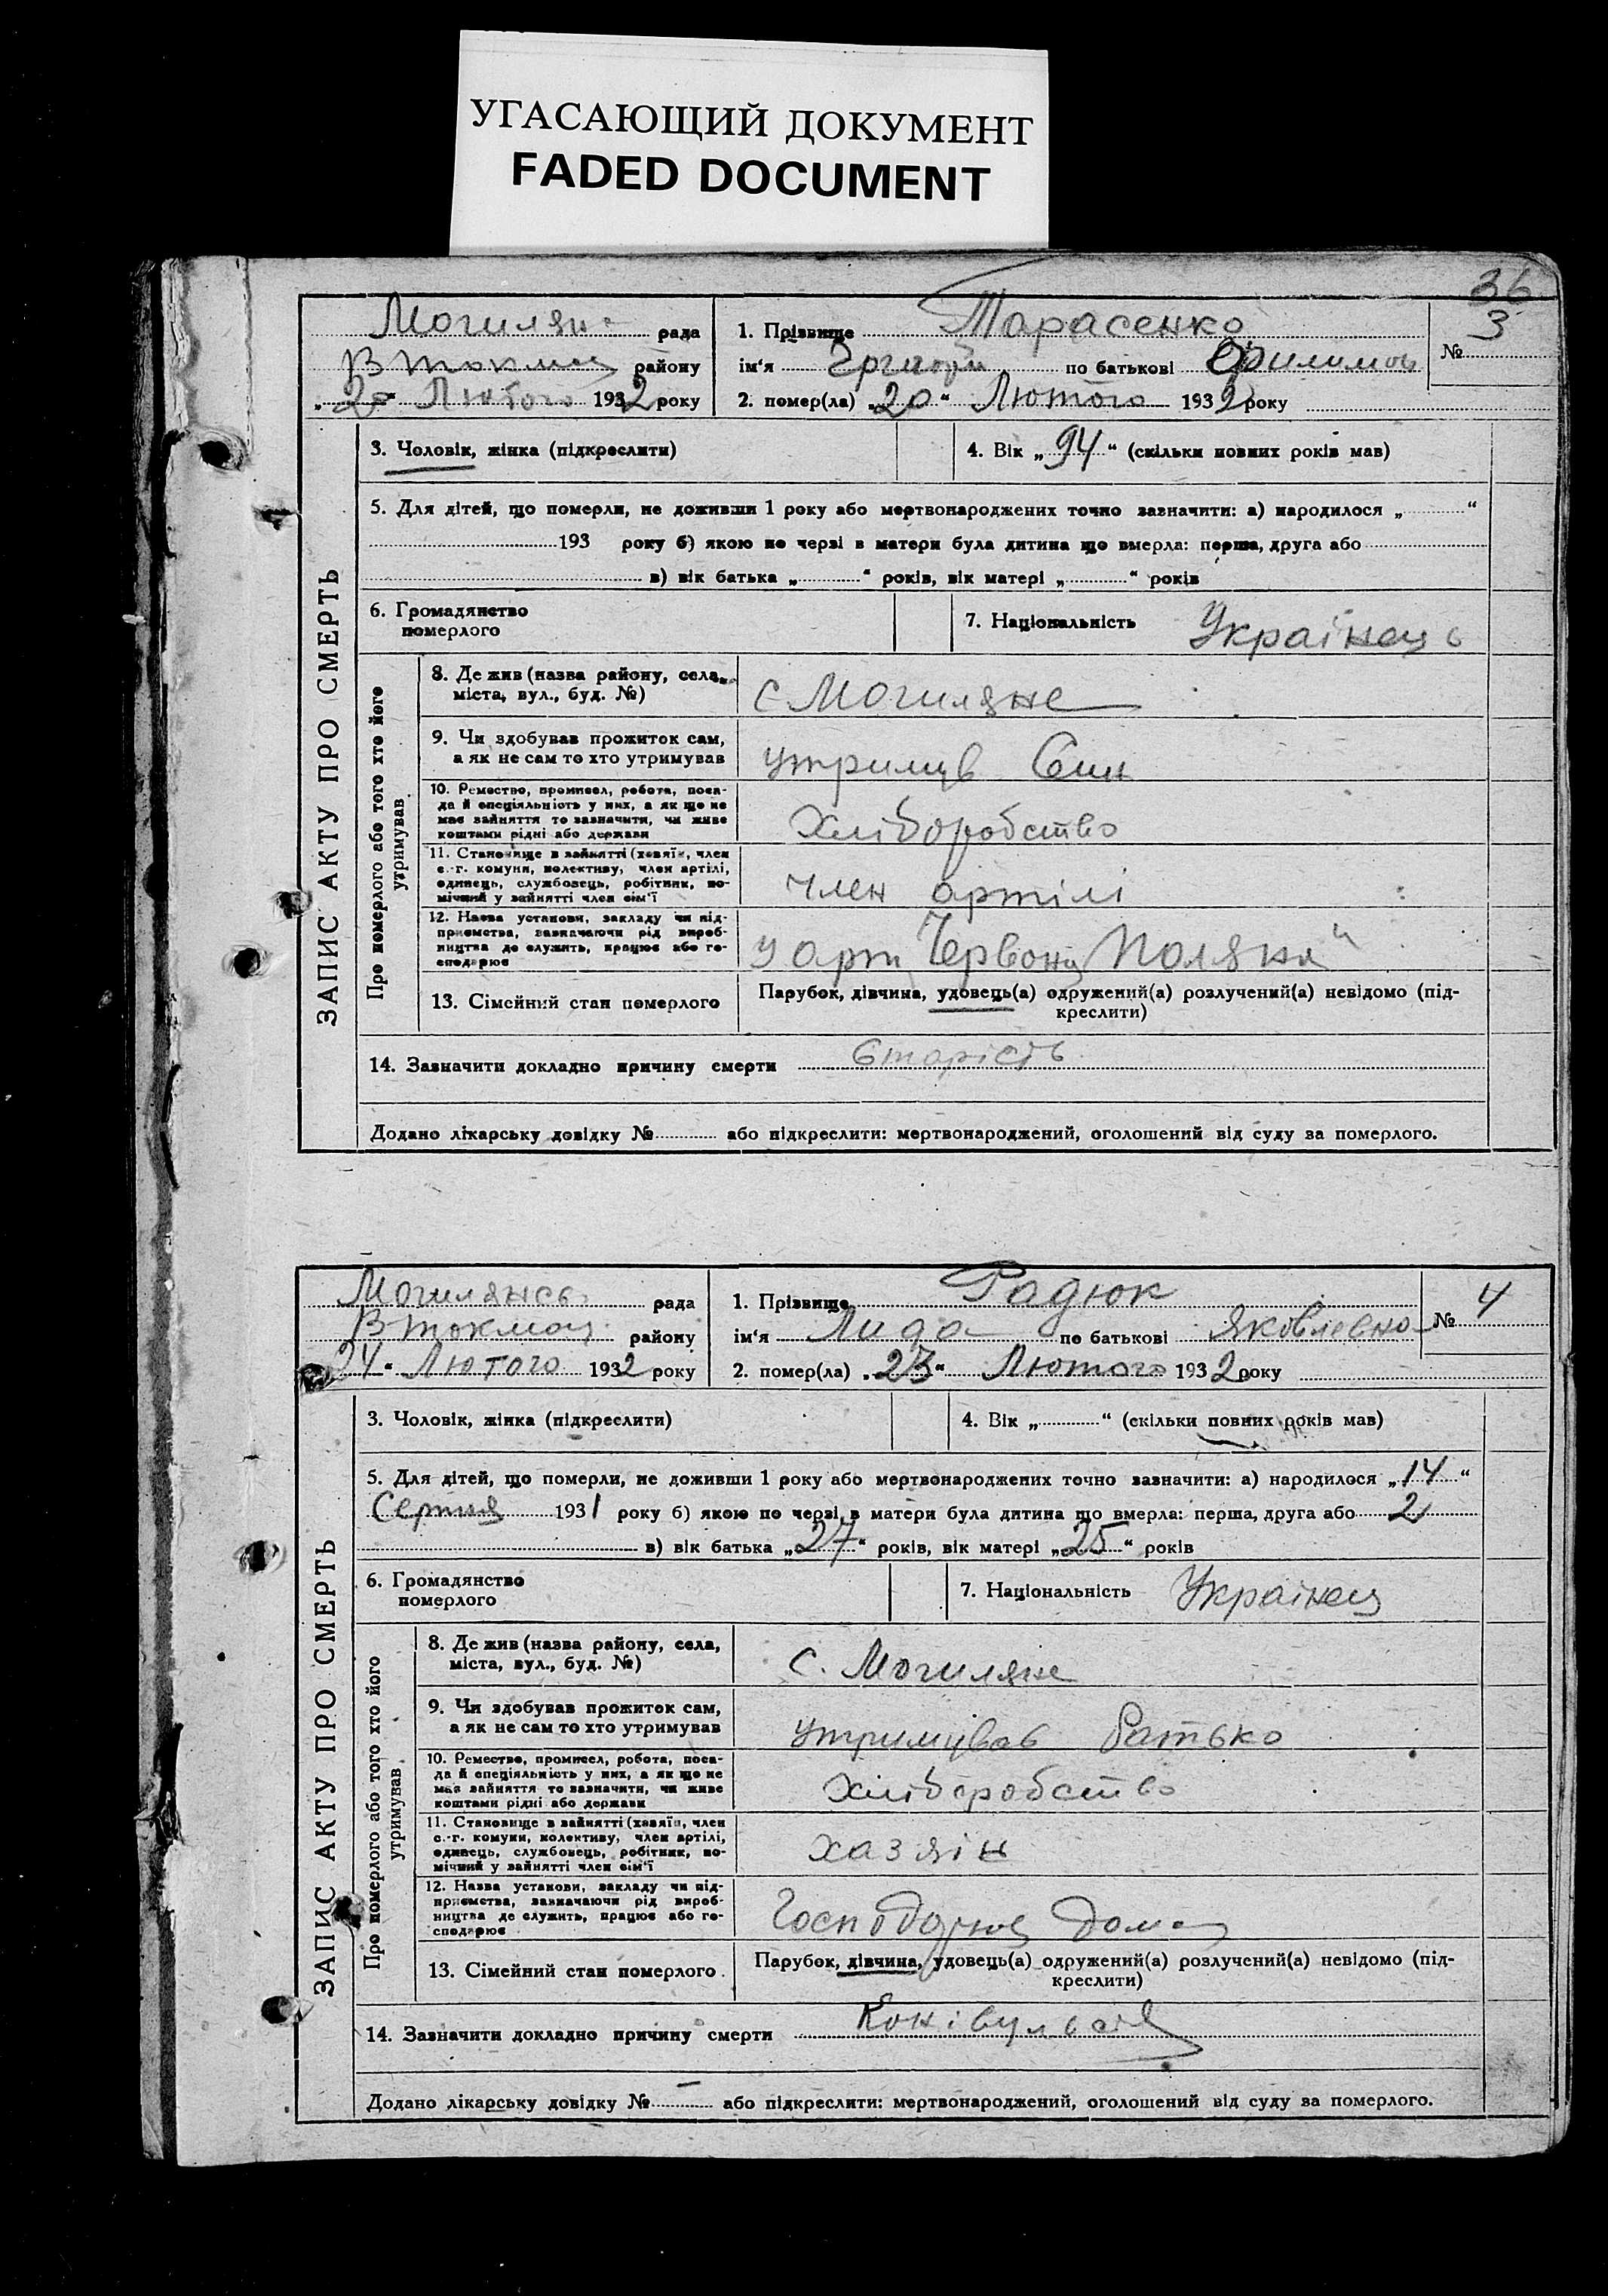 УГАСАЮЩИЙ ДОКУМЕНТ
FADED DOCUMENT
36
Могилян- рада
В Токмац району
"20" Лютого 1932 року
1. Прізвище Тарасенко
ім'я по батькові Филимон
2. помер(ла) "20" Лютого 1932 року
№ 3
ЗАПИС АКТУ ПРО СМЕРТЬ
3. Чоловік, жінка (підкреслити)
4. Вік „94" (скільки повних років мав)
5. Для дітей, що померли, не доживши 1 року або мертвонароджених точно зазначити: а) народилося „ "
193 року б) якою по черзі в матери була дитина що вмерла: перша, друга або
в) вік батька „ " років, вік матері „ " років
6. Громадянство
померлого
7. Національність Українець
Про померлого або того хто його
утримував
8. Де жив (назва району, села,
міста, вул., буд. №)
с Могиляне
9. Чи здобував прожиток сам,
а як не сам то хто утримував
утримув Син
10. Ремество, промисел, робота, поса-
да й спеціяльність у них, а як що не
має зайняття то зазначити, чи живе
коштами рідні або держави
Хліборобство
11. Становище в зайнятті (хазяїн, член
с.-г. комуни, колективу, член артілі,
одинець, службовець, робітник, по-
мічний у зайнятті член сім'ї
член артілі
12. Назва установи, закладу чи під-
приємства, зазначаючи рід вироб-
ництва де служить, працює або го-
сподарює
у арт Червона Поляна"
13. Сімейний стан померлого
Парубок, дівчина, удовець(а) одружений(а) розлучений(а) невідомо (під-
креслити)
14. Зазначити докладно причину смерти Старість
Додано лікарську довідку № або підкреслити: мертвонароджений, оголошений від суду за померлого.
Могилянсь рада
В Токмац району
24" Лютого 1932 року
1. Прізвище Радюк
ім'я Лида по батькові Яковлевна
2. помер(ла) "23" Лютого 1932 року
№ 4
ЗАПИС АКТУ ПРО СМЕРТЬ
3. Чоловік, жінка (підкреслити)
4. Вік „ " (скільки повних років мав)
5. Для дітей, що померли, не доживши 1 року або мертвонароджених точно зазначити: а) народилося „14"
Серпня 1931 року б) якою по черзі в матери була дитина що вмерла: перша, друга або 2
в) вік батька „27" років, вік матері „25" років
6. Громадянство
померлого
7. Національність Українец
Про померлого або того хто його
утримував
8. Де жив (назва району, села,
міста, вул., буд. №)
с. Могиляне
9. Чи здобував прожиток сам,
а як не сам то хто утримував
утримував батько
10. Ремество, промисел, робота, поса-
да й спеціяльність у них, а як що не
має зайняття то зазначити, чи живе
коштами рідні або держави
Хліборобство
11. Становище в зайнятті (хазяїн, член
с.-г. комуни, колективу, член артілі,
одинець, службовець, робітник, по-
мічний у зайнятті член сім'ї
хазяін
12. Назва установи, закладу чи під-
приємства, зазначаючи рід вироб-
ництва де служить, працює або го-
сподарює
Господарює дома
13. Сімейний стан померлого
Парубок, дівчина, удовець(а) одружений(а) розлучений(а) невідомо (під-
креслити)
14. Зазначити докладно причину смерти
Додано лікарську довідку № — або підкреслити: мертвонароджений, оголошений від суду за померлого.